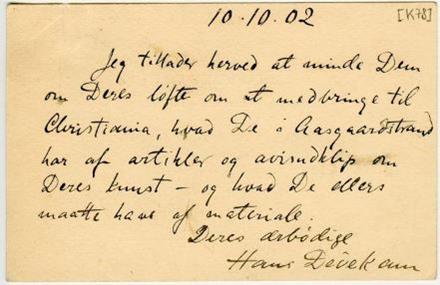 10.10.02
[K78]
Jeg tillader herved at minde Dem
om Deres løfte om at medbringe til
Christiania, hvad De i Aasgaardstrand
har af artikler og avisudklip om
Deres kunst – og hvad De ellers
maatte have af materiale.
Deres ærbødige
Hans Dedekam